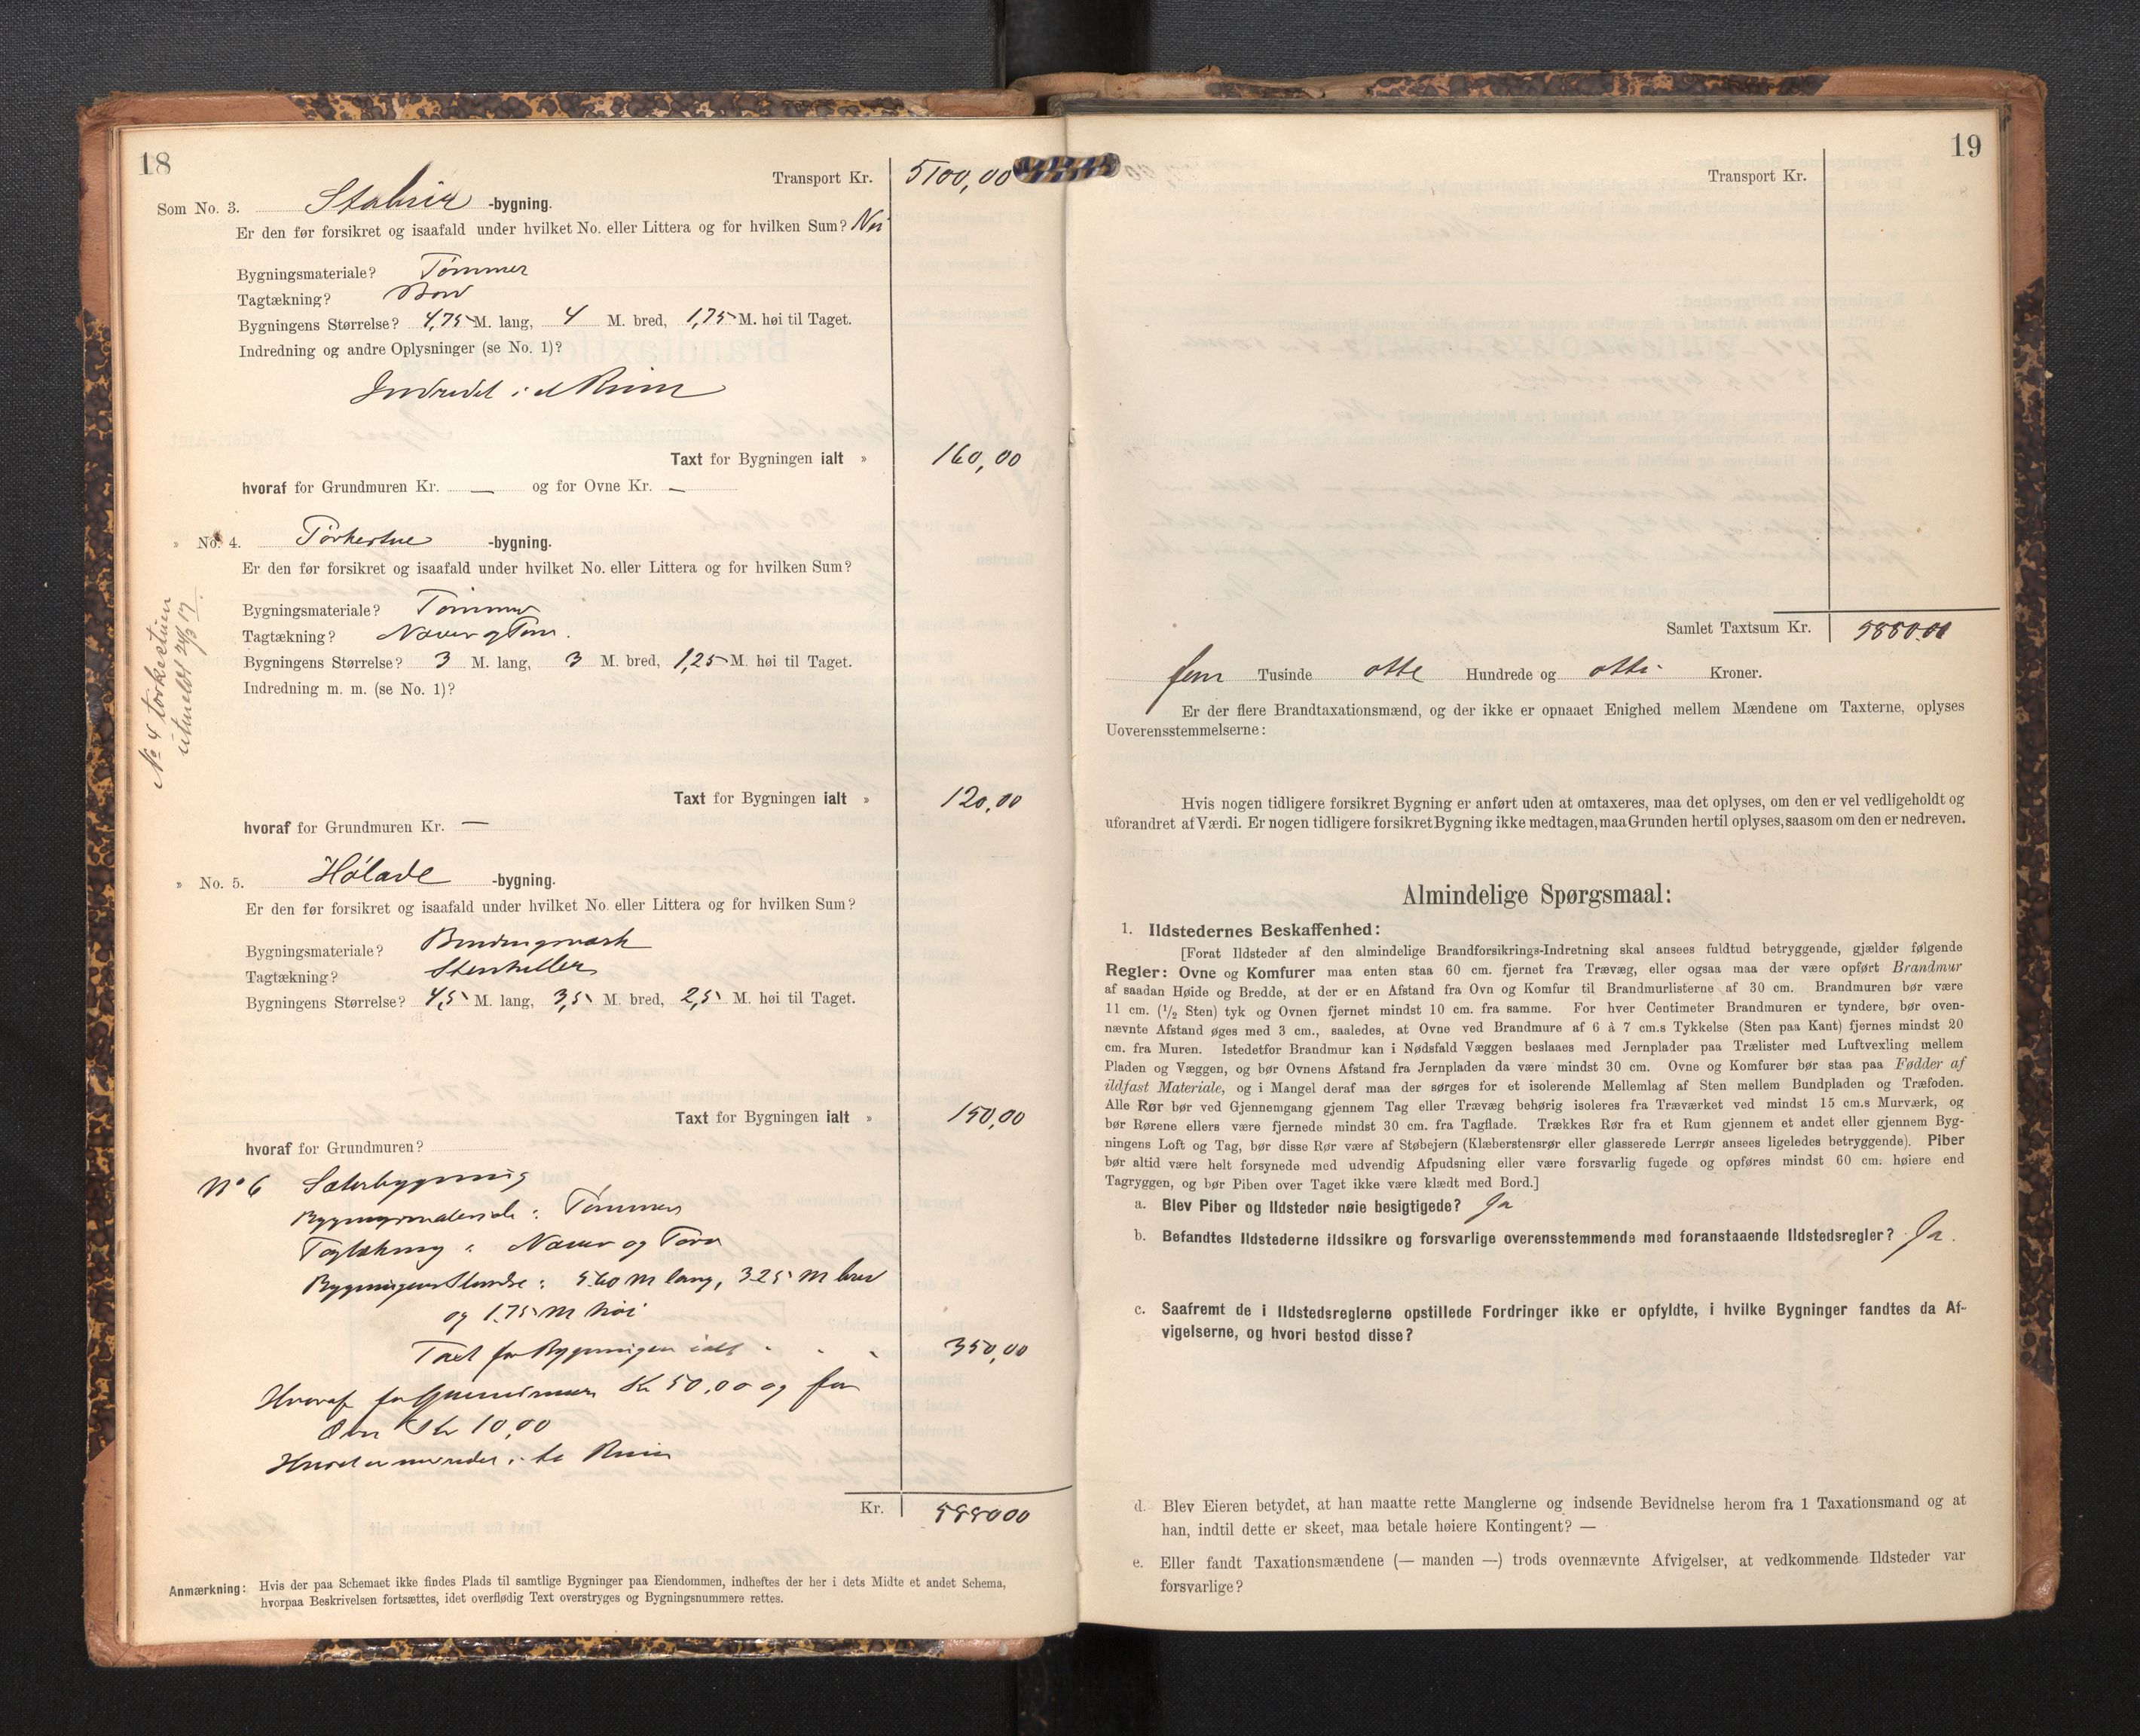 18
Transport Kr. 5100,00
Som No. 3. Stabur -bygning.
Er den før forsikret og isaafald under hvilket No. eller Littera og for hvilken Sum? Nei
Bygningsmateriale? Tømmer
Tagtækning? Bord
Bygningens Størrelse? 4,75 M. lang, 4 M. bred, 1,75 M. høi til Taget.
Indredning og andre Oplysninger (se No. 1)?
Indredet i et Rum
Taxt for Bygningen ialt » 160,00
hvoraf for Grundmuren Kr. — og for Ovne Kr. —
» No. 4. Tørkestue -bygning.
Er den før forsikret og isaafald under hvilket No. eller Littera og for hvilken Sum?
Bygningsmateriale? Tømmer
Tagtækning? Næver og Torv.
Bygningens Størrelse? 3 M. lang, 3 M. bred, 1,25 M. høi til Taget.
Indredning m. m. (se No. 1)?
No 4 tørkestuen
utmeldt 24/3 17.
Taxt for Bygningen ialt » 120,00
hvoraf for Grundmuren Kr. —
» No. 5. Hølade -bygning.
Er den før forsikret og isaafald under hvilket No. eller Littera og for hvilken Sum?
Bygningsmateriale? Bindingsværk
Tagtækning? Stenheller
Bygningens Størrelse? 4,5 M. lang, 3,5 M. bred, 2,5 M. høi til Taget.
Taxt for Bygningen ialt » 150,00
hvoraf for Grundmuren?
No 6 Sæterbygning
Bygningsmateriale: Tømmer
Tagtækning: Næver og Torv
Bygningens Størrelse: 5.60 M lang, 3.25 M bred
og 1.75 M høi
Taxt for Bygningen ialt 350,00
Hvoraf for Grundmuren Kr 50,00 og for
Ovn Kr 10,00
Huset er inredet i to Rum
Kr. 588000
Anmærkning: Hvis der paa Schemaet ikke findes Plads til samtlige Bygninger paa Eiendommen, indheftes der her i dets Midte et andet Schema,
hvorpaa Beskrivelsen fortsættes, idet overflødig Text overstryges og Bygningsnummere rettes.
19
Transport Kr.
Samlet Taxtsum Kr. 588000
fem Tusinde otte Hundrede og otti Kroner.
Er der flere Brandtaxationsmænd, og der ikke er opnaaet Enighed mellem Mændene om Taxterne, oplyses
Uoverensstemmelserne:
Hvis nogen tidligere forsikret Bygning er anført uden at omtaxeres, maa det oplyses, om den er vel vedligeholdt og
uforandret af Værdi. Er nogen tidligere forsikret Bygning ikke medtagen, maa Grunden hertil oplyses, saasom om den er nedreven.
Almindelige Spørgsmaal:
1. Ildstedernes Beskaffenhed:
[Forat Ildsteder af den almindelige Brandforsikrings-Indretning skal ansees fuldtud betryggende, gjælder følgende
Regler: Ovne og Komfurer maa enten staa 60 cm. fjernet fra Trævæg, eller ogsaa maa der være opført Brandmur
af saadan Høide og Bredde, at der er en Afstand fra Ovn og Komfur til Brandmurlisterne af 30 cm. Brandmuren bør være
11 cm. (1/2 Sten) tyk og Ovnen fjernet mindst 10 cm. fra samme. For hver Centimeter Brandmuren er tyndere, bør oven-
nævnte Afstand øges med 3 cm., saaledes, at Ovne ved Brandmure af 6 à 7 cm.s Tykkelse (Sten paa Kant) fjernes mindst 20
cm. fra Muren. Istedetfor Brandmur kan i Nødsfald Væggen beslaaes med Jernplader paa Trælister med Luftvexling mellem
Pladen og Væggen, og bør Ovnens Afstand fra Jernpladen da være mindst 30 cm. Ovne og Komfurer bør staa paa Fødder af
ildfast Materiale, og i Mangel deraf maa der sørges for et isolerende Mellemlag af Sten mellem Bundpladen og Træfoden.
Alle Rør bør ved Gjennemgang gjennem Tag eller Trævæg behørig isoleres fra Træværket ved mindst 15 cm.s Murværk, og
bør Rørene ellers være fjernede mindst 30 cm. fra Tagflade. Trækkes Rør fra et Rum gjennem et andet eller gjennem Byg-
ningens Loft og Tag, bør disse Rør være af Støbejern (Klæberstensrør eller glasserede Lerrør ansees ligeledes betryggende). Piber
bør altid være helt forsynede med udvendig Afpudsning eller være forsvarlig fugede og opføres mindst 60 cm. høiere end
Tagryggen, og bør Piben over Taget ikke være klædt med Bord.]
a. Blev Piber og Ildsteder nøie besigtigede? Ja
b. Befandtes Ildstederne ildssikre og forsvarlige overensstemmende med foranstaaende Ildstedsregler? Ja.
c. Saafremt de i Ildstedsreglerne opstillede Fordringer ikke er opfyldte, i hvilke Bygninger fandtes da Af-
vigelserne, og hvori bestod disse?
d. Blev Eieren betydet, at han maatte rette Manglerne og indsende Bevidnelse herom fra 1 Taxationsmand og at
han, indtil dette er skeet, maa betale høiere Kontingent? —
e. Eller fandt Taxationsmændene (— manden —) trods ovennævnte Afvigelser, at vedkommende Ildsteder var
forsvarlige?